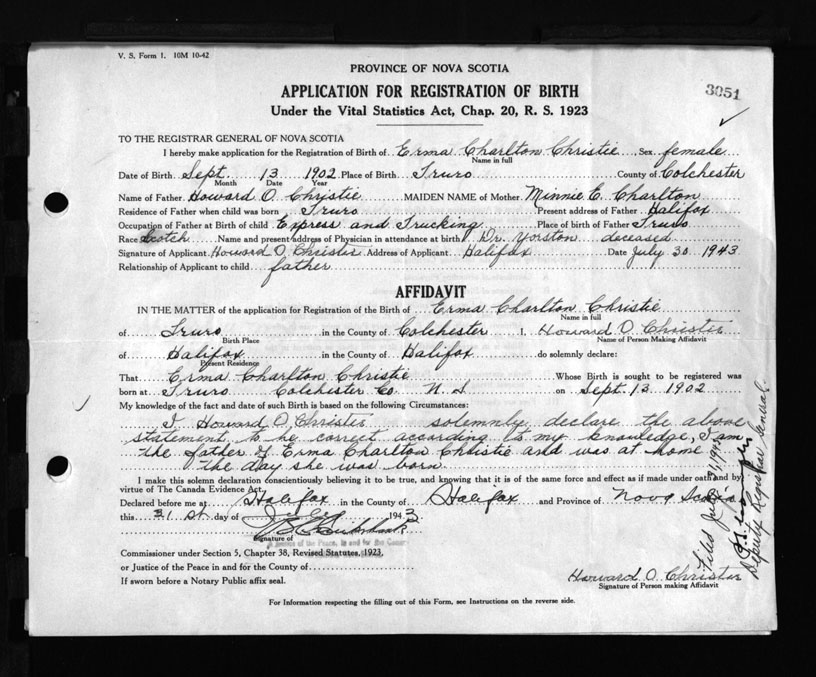 V. S. Form 1. 10M 10-42
PROVINCE OF NOVA SCOTIA
APPLICATION FOR REGISTRATION OF BIRTH
3051
Under the Vital Statistics Act, Chap. 20, R. S. 1923
TO THE REGISTRAR GENERAL OF NOVA SCOTIA
I hereby make application for the Registration of Birth of Erma Charlton Christie, Sex female
Name in full
Date of Birth Sept. 13 1902 Place of Birth Truro County of Colchester
Month Date Year
Name of Father Howard O. Christie MAIDEN NAME of Mother Minnie E. Charlton
Residence of Father when child was born Truro Present address of Father Halifax
Occupation of Father at Birth of child Express and Trucking Place of birth of Father Truro
Race Scotch Name and present address of Physician in attendance at birth Dr. Yorston deceased
Signature of Applicant Howard O. Christie Address of Applicant Halifax Date July 30 1943
Relationship of Applicant to child father
AFFIDAVIT
IN THE MATTER of the application for Registration of the Birth of Erma Charlton Christie
Name in full
of Truro in the County of Colchester I, Howard O. Christie
Birth Place Name of Person Making Affidavit
of Halifax in the County of Halifax do solemnly declare:
Present Residence
That Erma Charlton Christie Whose Birth is sought to be registered was
born at Truro Colchester Co. N.S on Sept. 13 1902
My knowledge of the fact and date of such Birth is based on the following Circumstances:
I Howard O. Christie solemnly declare the above
statement to be correct according to my knowledge, I am
the father of Erma Charlton Christie and was at home
the day she was born.
I make this solemn declaration conscientiously believing it to be true, and knowing that it is of the same force and effect as if made under oath and by
virtue of The Canada Evidence Act.
Declared before me at Halifax in the County of Halifax and Province of Nova Scotia
this 31 st day of July 1943
Signature of
A Justice of the Peace, in and for the County
Commissioner under Section 5, Chapter 38, Revised Statutes, 1923,
or Justice of the Peace in and for the County of
If sworn before a Notary Public affix seal.
Howard O. Christie
Signature of Person making Affidavit
For Information respecting the filling out of this Form, see Instructions on the reverse side.
Filed July 31/1943
Deputy Registrar General